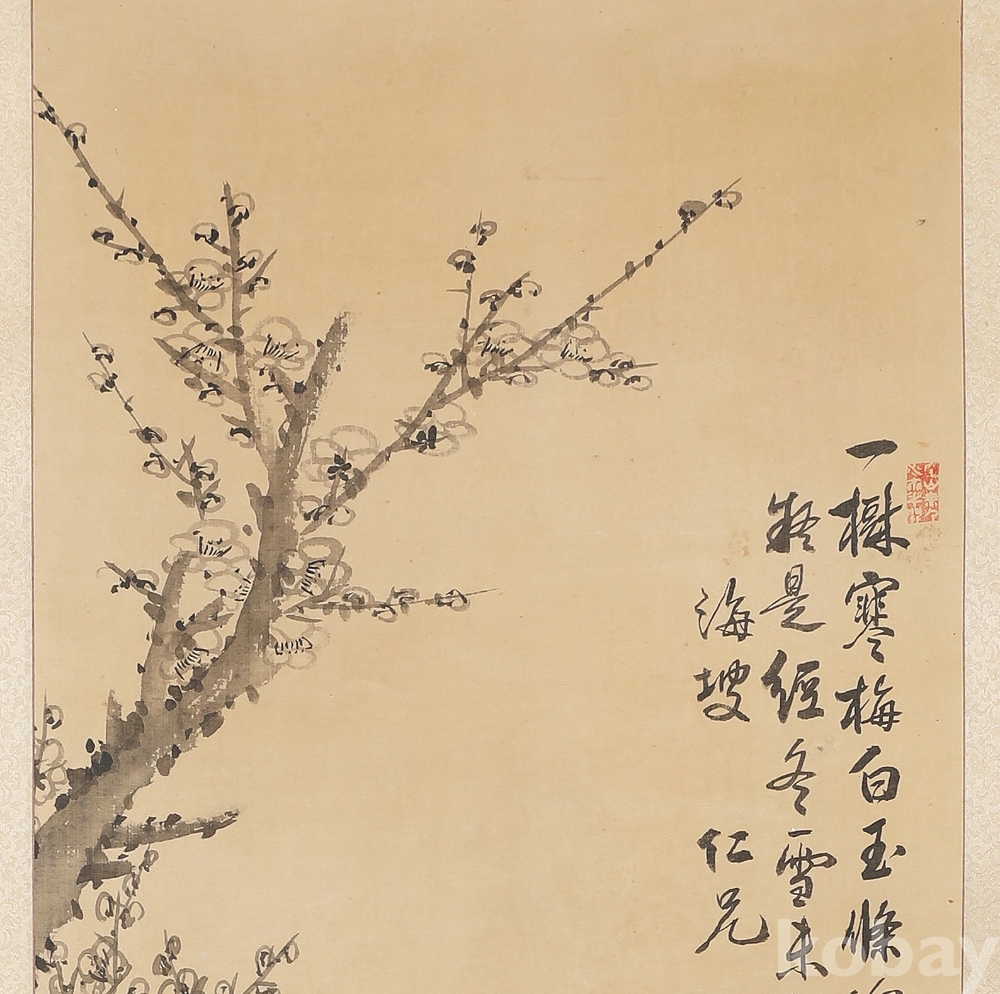 一樹寒梅白玉條
疑是經冬雪未
海 仁兄
kobay